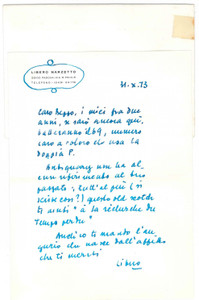 LIBERO MARZETTO
31.X.73
Caro Beppo, i miei fra due
anni, e sarò ancora qui,
saranno il 69, numero
caro a coloro che usa la
doppia P.
Antiquary non ha al
cun riferimento al tuo
passato; tutt'al più (si
scrive così?) questo old scotch
ti aiuti "à la recherche du
temps perdu".
Anch'io ti mando l'au
gurio che nasce dall'affetto
che ti meriti
Libero